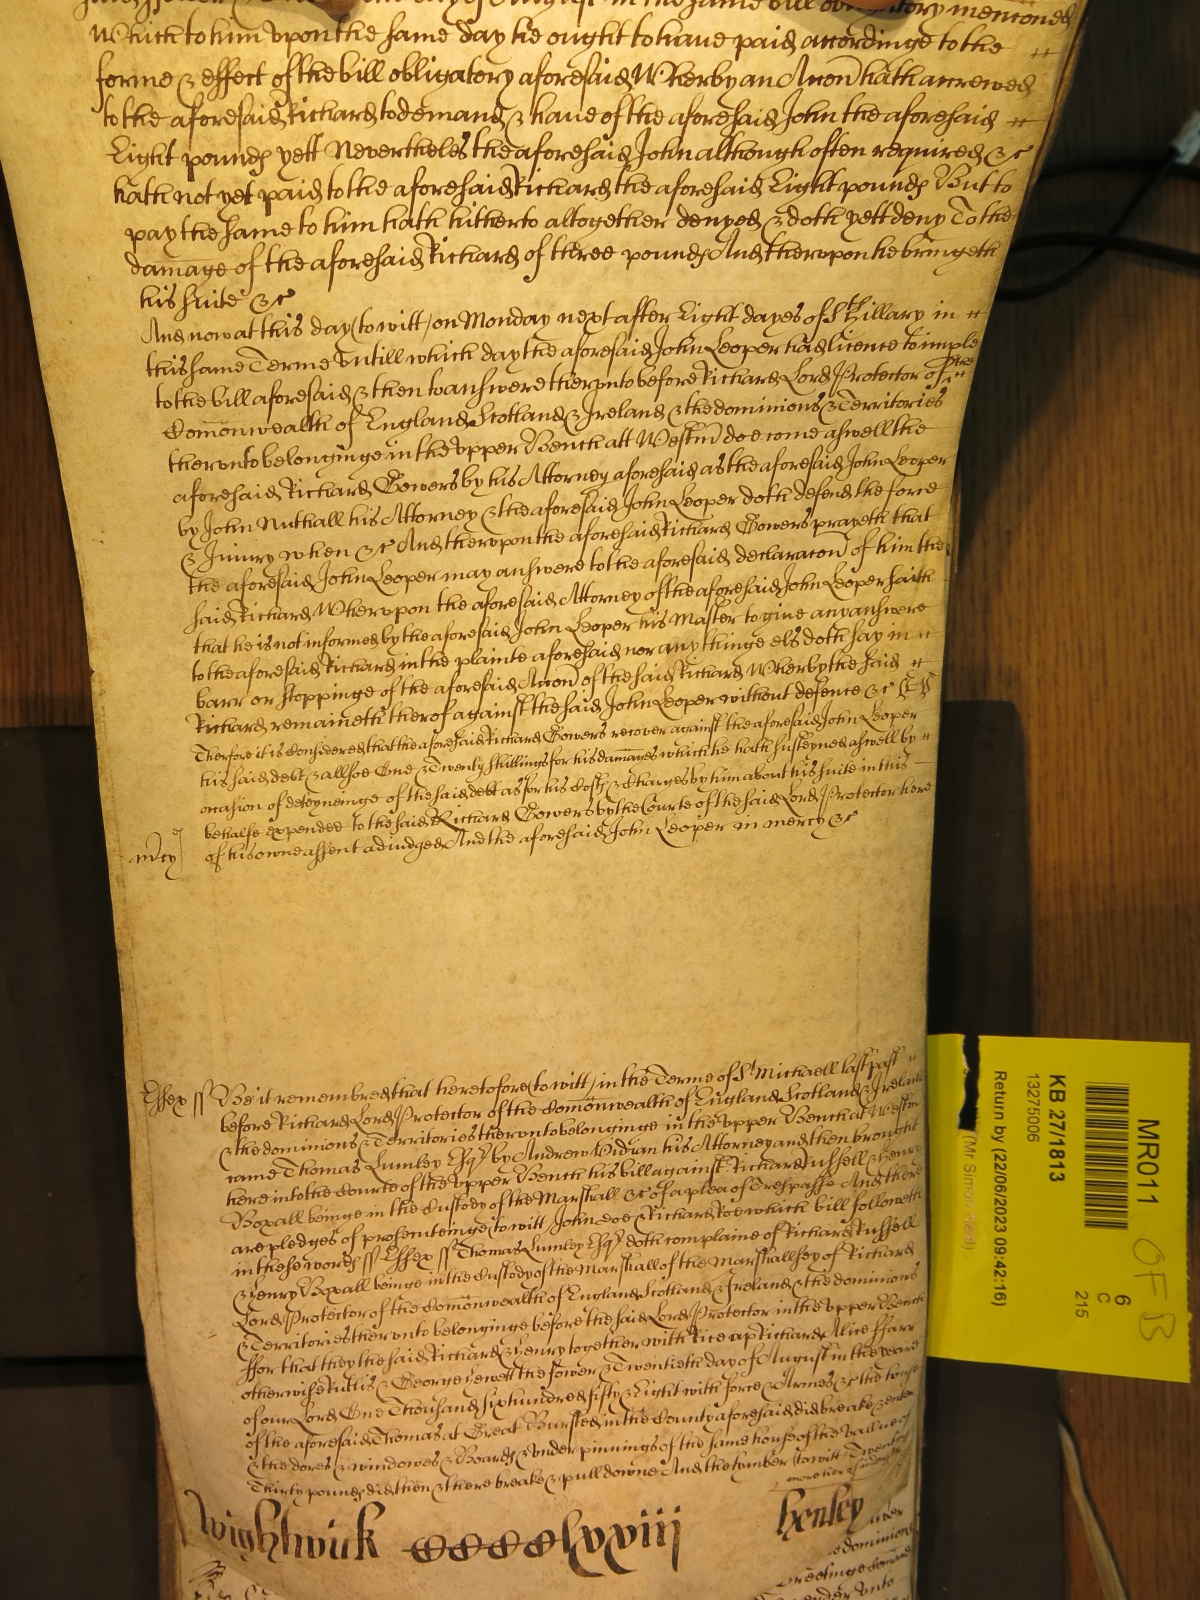 in the same bill obligatory mencioned
Which to him vpon the same day he ought to haue paid accordinge to the
forme & effect of the bill obligatory aforesaid Wherby an Accon hath accrewed
to the aforesaid Richard to demand & haue of the aforesaid John the aforesaid
Eight pounds yett Neverthelesse the aforesaid John although often required &c
hath not yet paid to the aforesaid Richard the aforesaid Eight pounds But to
pay the same to him hath hitherto altogether denyed & doth yett deny To the
damage of the aforesaid Richard of three pounds And therevpon he bringeth
his suite &c
And now at this day (to witt) on Monday next after Eight dayes of St Hillary in
this same Terme Vntill which day the aforesaid John Leoper had licence to imple
to the bill aforesaid & then to answere thervnto before Richard Lord Protector of the
Comonwealth of England Scotland & Ireland & the dominions & Territories
thervnto belonginge in the vpper Bench att Westm doe come aswell the
aforesaid Richard Gowers by his Attorney aforesaid as the aforesaid John Leoper
by John Nuthall his Attorney & the aforesaid John Leoper doth defend the force
& Iniury when &c And thervpon the aforesaid Richard Gowers prayeth that
the aforesaid John Leoper may answere to the aforesaid declaracon of him the
said Richard Whervpon the aforesaid Attorney of the aforesaid John Leoper saith
that he is not informed by the aforesaid John Leoper his Master to giue any answere
to the aforesaid Richard in the plainte aforesaid nor any thinge els doth say in
barr or stoppinge of the aforesaid Accon of the said Richard Wherby the said
Richard remaineth therof against the said John Leoper without defence &c
Therfore it is Considered that the aforesaid Richard Gowers recover against the aforesaid John Leoper
his said debt & allsoe One & Twenty shillings for his damages which he hath susteyned aswell by
occasion of deteyneinge of the said debt as for his Costs & Charges by him about his suite in this
behalfe expended to the said Richard Gowers by the Courte of the said Lord Protector here
m'cy of his owne assent adiudged And the aforesaid John Leoper in mercy &c
Essex ss Be it remembred that heretofore (to witt) in the Terme of St Michaell last past
before Richard Lord Protector of the Comonwealth of England Scotland & Ireland
& the dominions & Territories thervnto belonginge in the vpper Bench at Westm
came Thomas Lumley Esqr by Andrew his Attorney and then brought
here into the Courte of the vpper Bench his bill against Richard Russell & Henry
Boxall beinge in the Custody of the Marshall &c of a plea of Trespasse And there
are pledges of prosecuteinge to witt John doe & Richard Roe which bill followeth
in these words ss Essex ss Thomas Lumley Esqr doth complaine of Richard Russell
& Henry Boxall beinge in the Custody of the Marshall of the Marshallsey of Richard
Lord Protector of the Comonwealth of England Scotland & Ireland & the dominions
& Territories thervnto belonginge before the said Lord Protector in the vpper Bench
ffor that they the said Richard & Henry together with Rice ap Richard Alice ffarr
otherwise & George Hewett the fower & Twentieth day of August in the yeare
of our Lord One Thousand six hundred fifty & Eight with force & Armes &c the house
of the aforesaid Thomas at Great Bursted in the County aforesaid did breake & enter
& the dores & windowes & Boards & vnder pinnings of the same house of the vallue of
Thirty pounds did then & there breake & pull downe And the tymber (to witt) Twenty
Wightwick CCCClxviij Henley
dominions
Greetinge
MR011
OFB
6
C
215
KB 27/1813
13275006
(Mr Simon Neal)
Return by (22/06/2023 09:42:16)